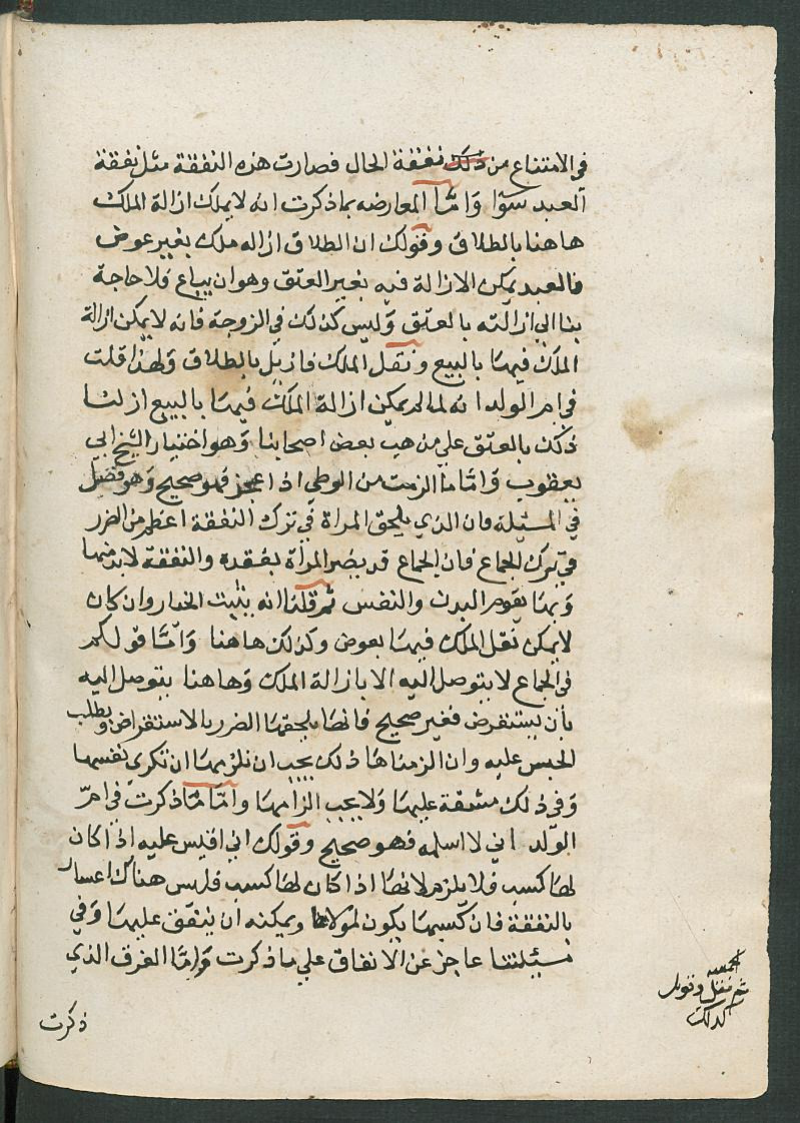 في الامتناع من ذلك نفقة الحال فصارت هذه النفقة مثل نفقة
العبد سوا وَامّا المعارضه بماذكرت انه لا يملك ازالة الملك
هاهنا بالطلاق وقولك ان الطلاق ازاله ملك بغير عوض
فالعبد يمكن الازالة فيه بغير العتق وهو ان يباع فلا حاجة
بنا الى ازالته بالعتق وَليس كذلك في الزوجة فانه لا يمكن ازالة
الملك فيها بالبيع ونقل الملك فازيل بالطلاق وَلهذا قلت
في ام الولد انه لما لم يمكن ازالة الملك فيها بالبيع ازلنا
ذلك بالعتق على مذهب بعض اصحابنا وَهو اختيار الشيخ ابي
يعقوب وَامّا ما الزمت من الوطي اذا عجز فهو صحيح وَهو فصل
في المسئلة فان الذي يلحق المراة في ترك النفقة اعظم من الضرر
في ترك الجماع فان الجماع قد يضر المرأة بفقده والنفقة لابد منها
وَبها يقوم البدن والنفس ثم قلنا انه يثبت الخيار وان كان
لا يمكن نقل الملك فيها بعوض وكذلك هاهنا وَامّا قولكم
في الجماع لا يتوصل اليه الا بازالة الملك وَهاهنا يتوصل اليه
بأن يستقرض فغير صحيح فانها يلحقها الضرر بالاستقراض ويطلب
الحبس عليه وان الزمناها ذلك يجب ان نلزمها ان تكري نفسها
وَفي ذلك مشقة عليها وَلا يجب الزامها وامّا ماذكرت في امّ
الوَلد اني لا اسلمه فهو صحيح وقولك اني اقيس عليه اذا كان
لها كسب فلا يلزم لانها اذا كان لها كسب فليس هناك اعسار
بالنفقة فان كسبها يكون لمولاها ويمكنه ان ينفق عليها وَفي
مسئلتنا عاجز عن الانفاق على ما ذكرت وَامّا الفرق الذي
ذكرت